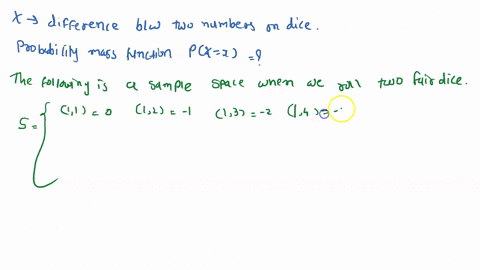 X → difference b/w two numbers on dice.
Probability mass function P(X=x) = ?
The following is a sample space when we roll two fair dice.
S = { (1,1) = 0 (1,2) = -1 (1,3) = -2 (1,4) = -